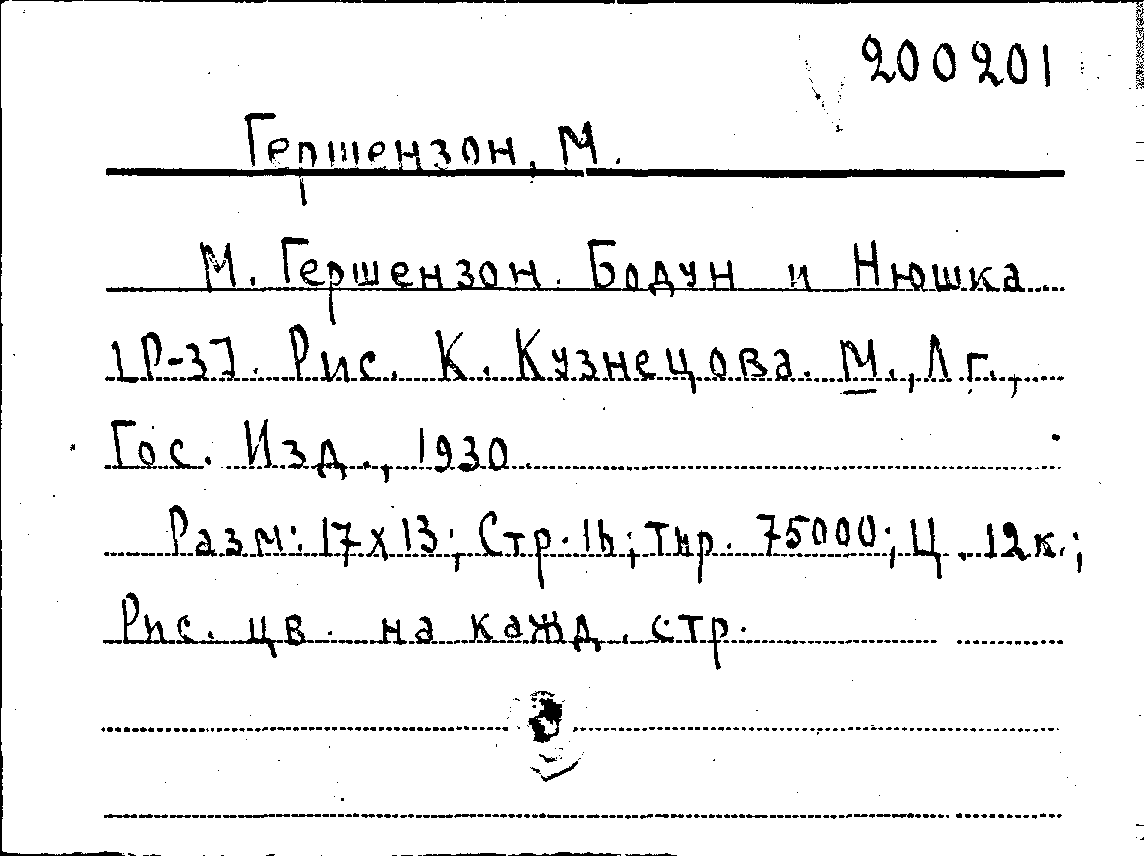 200201
Гершензон, М.
М. Гершензон. Бодун и Нюшка
[Р-3]. Рис. К. Кузнецова. М., Лг.,
Гос. Изд., 1930
Разм: 17х13; Стр. 16; тир. 75000; Ц. 12к.;
Рис. цв. на кажд. стр.